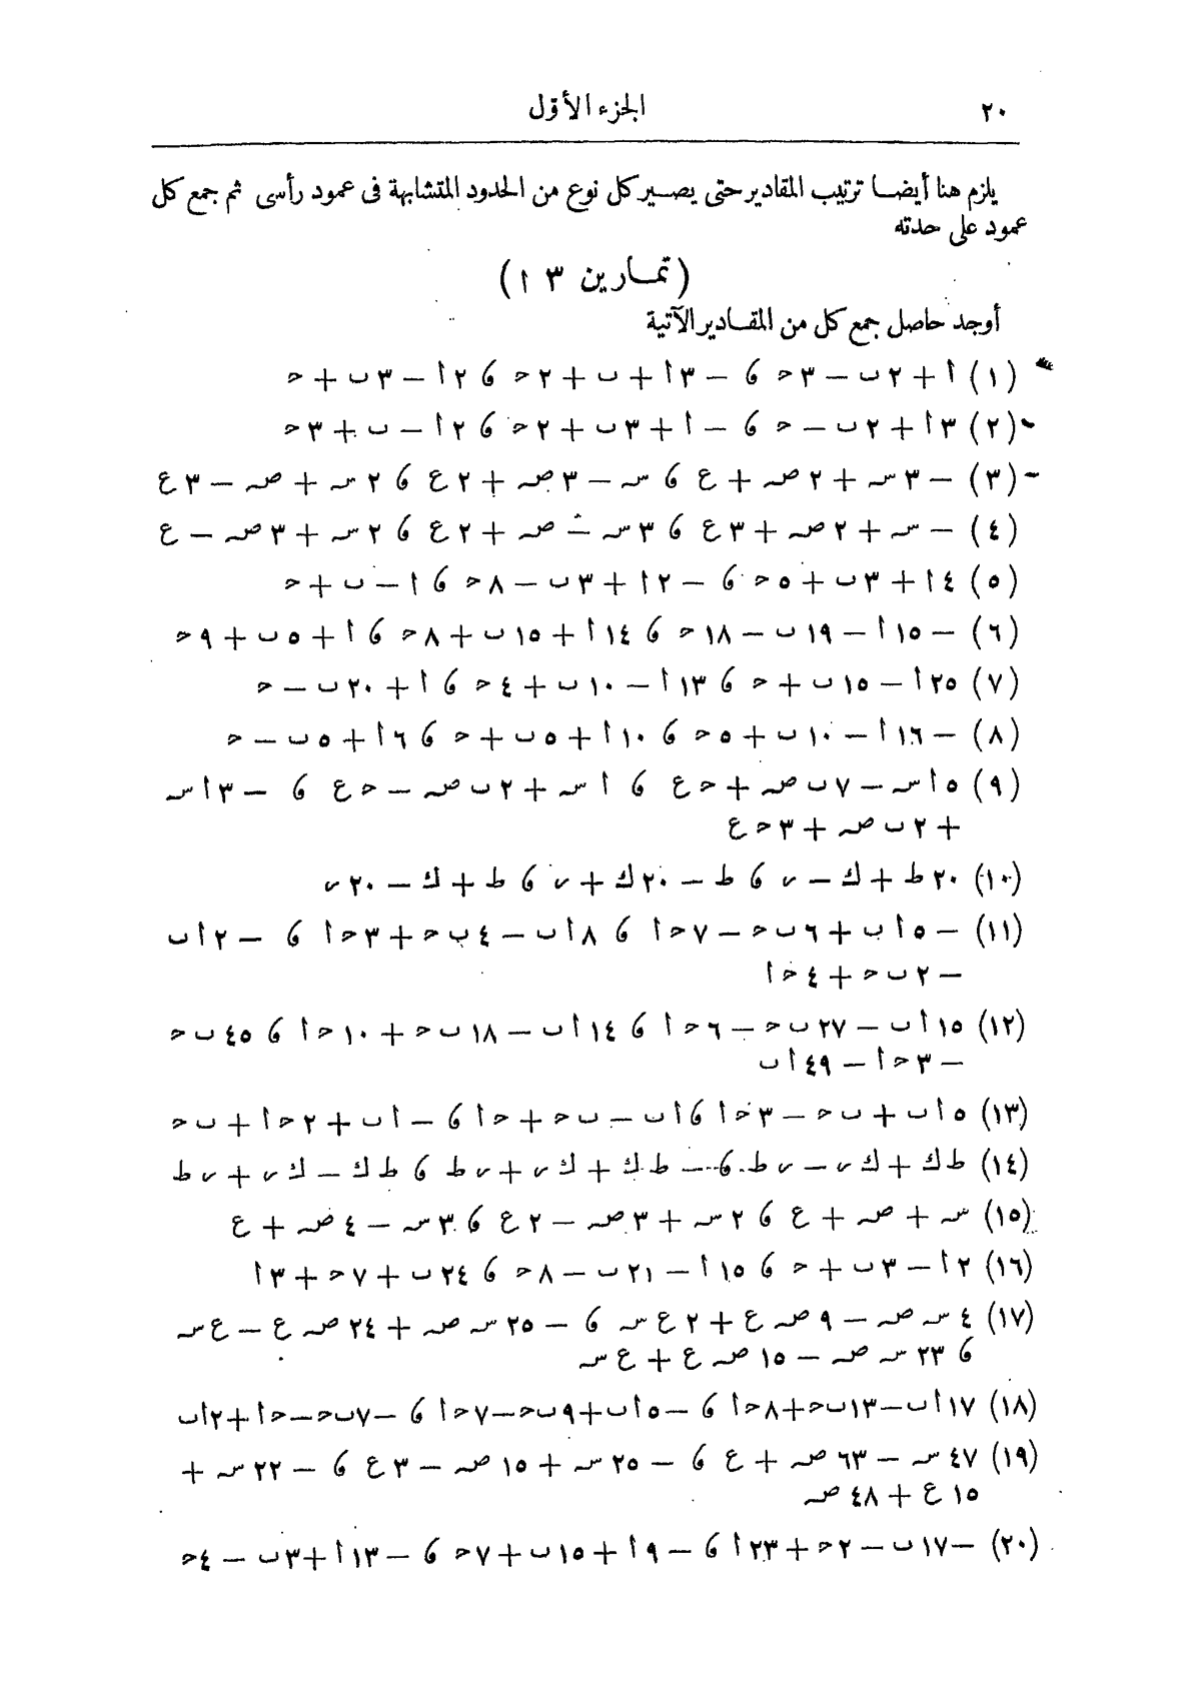 ٢٠ الجزء الأول
يلزم هنا أيضا ترتيب المقادير حتى يصير كل نوع من الحدود المتشابهة فى عمود رأسى ثم جمع كل
عمود على حدته
(تمارين ١٣)
أوجد حاصل جمع كل من المقادير الآتية
(١) أ + ٢ب − ٣ح ، −٣أ + ب + ٢ح ، ٢أ − ٣ب + ح
(٢) ٣أ + ٢ب − ح ، −أ + ٣ب + ٢ح ، ٢أ − ب + ٣ح
(٣) −٣س + ٢ص + ع ، س − ٣ص + ٢ع ، ٢س + ص − ٣ع
(٤) −س + ٢ص + ٣ع ، ٣س − ص + ٢ع ، ٢س + ٣ص − ع
(٥) ٤أ + ٣ب + ٥ح ، −٢أ + ٣ب − ٨ح ، أ − ب + ح
(٦) −١٥أ − ١٩ب − ١٨ح ، ١٤أ + ١٥ب + ٨ح ، أ + ٥ب + ٩ح
(٧) ٢٥أ − ١٥ب + ح ، ١٣أ − ١٠ب + ٤ح ، أ + ٢٠ب − ح
(٨) −١٦أ − ١٠ب + ٥ح ، ١٠أ + ٥ب + ح ، ٦أ + ٥ب − ح
(٩) ٥أس − ٧ب ص + ح ع ، أس + ٢ب ص − ح ع ، −٣أس
+ ٢ب ص + ٣ح ع
(١٠) ٢٠ط + ك − ر ، ط − ٢٠ك + ر ، ط + ك − ٢٠ر
(١١) −٥أب + ٦ب ح − ٧ح أ ، ٨أب − ٤ب ح + ٣ح أ ، −٢أب
− ٢ب ح + ٤ح أ
(١٢) ١٥أب − ٢٧ب ح − ٦ح أ ، ١٤أب − ١٨ب ح + ١٠ح أ ، ٤٥ب ح
− ٣ح أ − ٤٩أب
(١٣) ٥أب + ب ح − ٣ح أ ، أب − ب ح + ح أ ، −أب + ٢ح أ + ب ح
(١٤) ط ك + ك ر − ر ط ، −ط ك + ك ر + ر ط ، ط ك − ك ر + ر ط
(١٥) س + ص + ع ، ٢س + ٣ص − ٢ع ، ٣س − ٤ص + ع
(١٦) ٢أ − ٣ب + ح ، ١٥أ − ٢١ب − ٨ح ، ٢٤ب + ٧ح + ٣أ
(١٧) ٤س ص − ٩ص ع + ٢ع س ، −٢٥س ص + ٢٤ص ع − ع س
، ٢٣س ص − ١٥ص ع + ع س
(١٨) ١٧أب − ١٣ب ح + ٨ح أ ، −٥أب + ٩ب ح − ٧ح أ ، −٧ب ح − ح أ + ٢أب
(١٩) ٤٧س − ٦٣ص + ع ، −٢٥س + ١٥ص − ٣ع ، −٢٢س +
١٥ع + ٤٨ص
(٢٠) −١٧ب − ٢ح + ٢٣أ ، −٩أ + ١٥ب + ٧ح ، −١٣أ + ٣ب − ٤ح